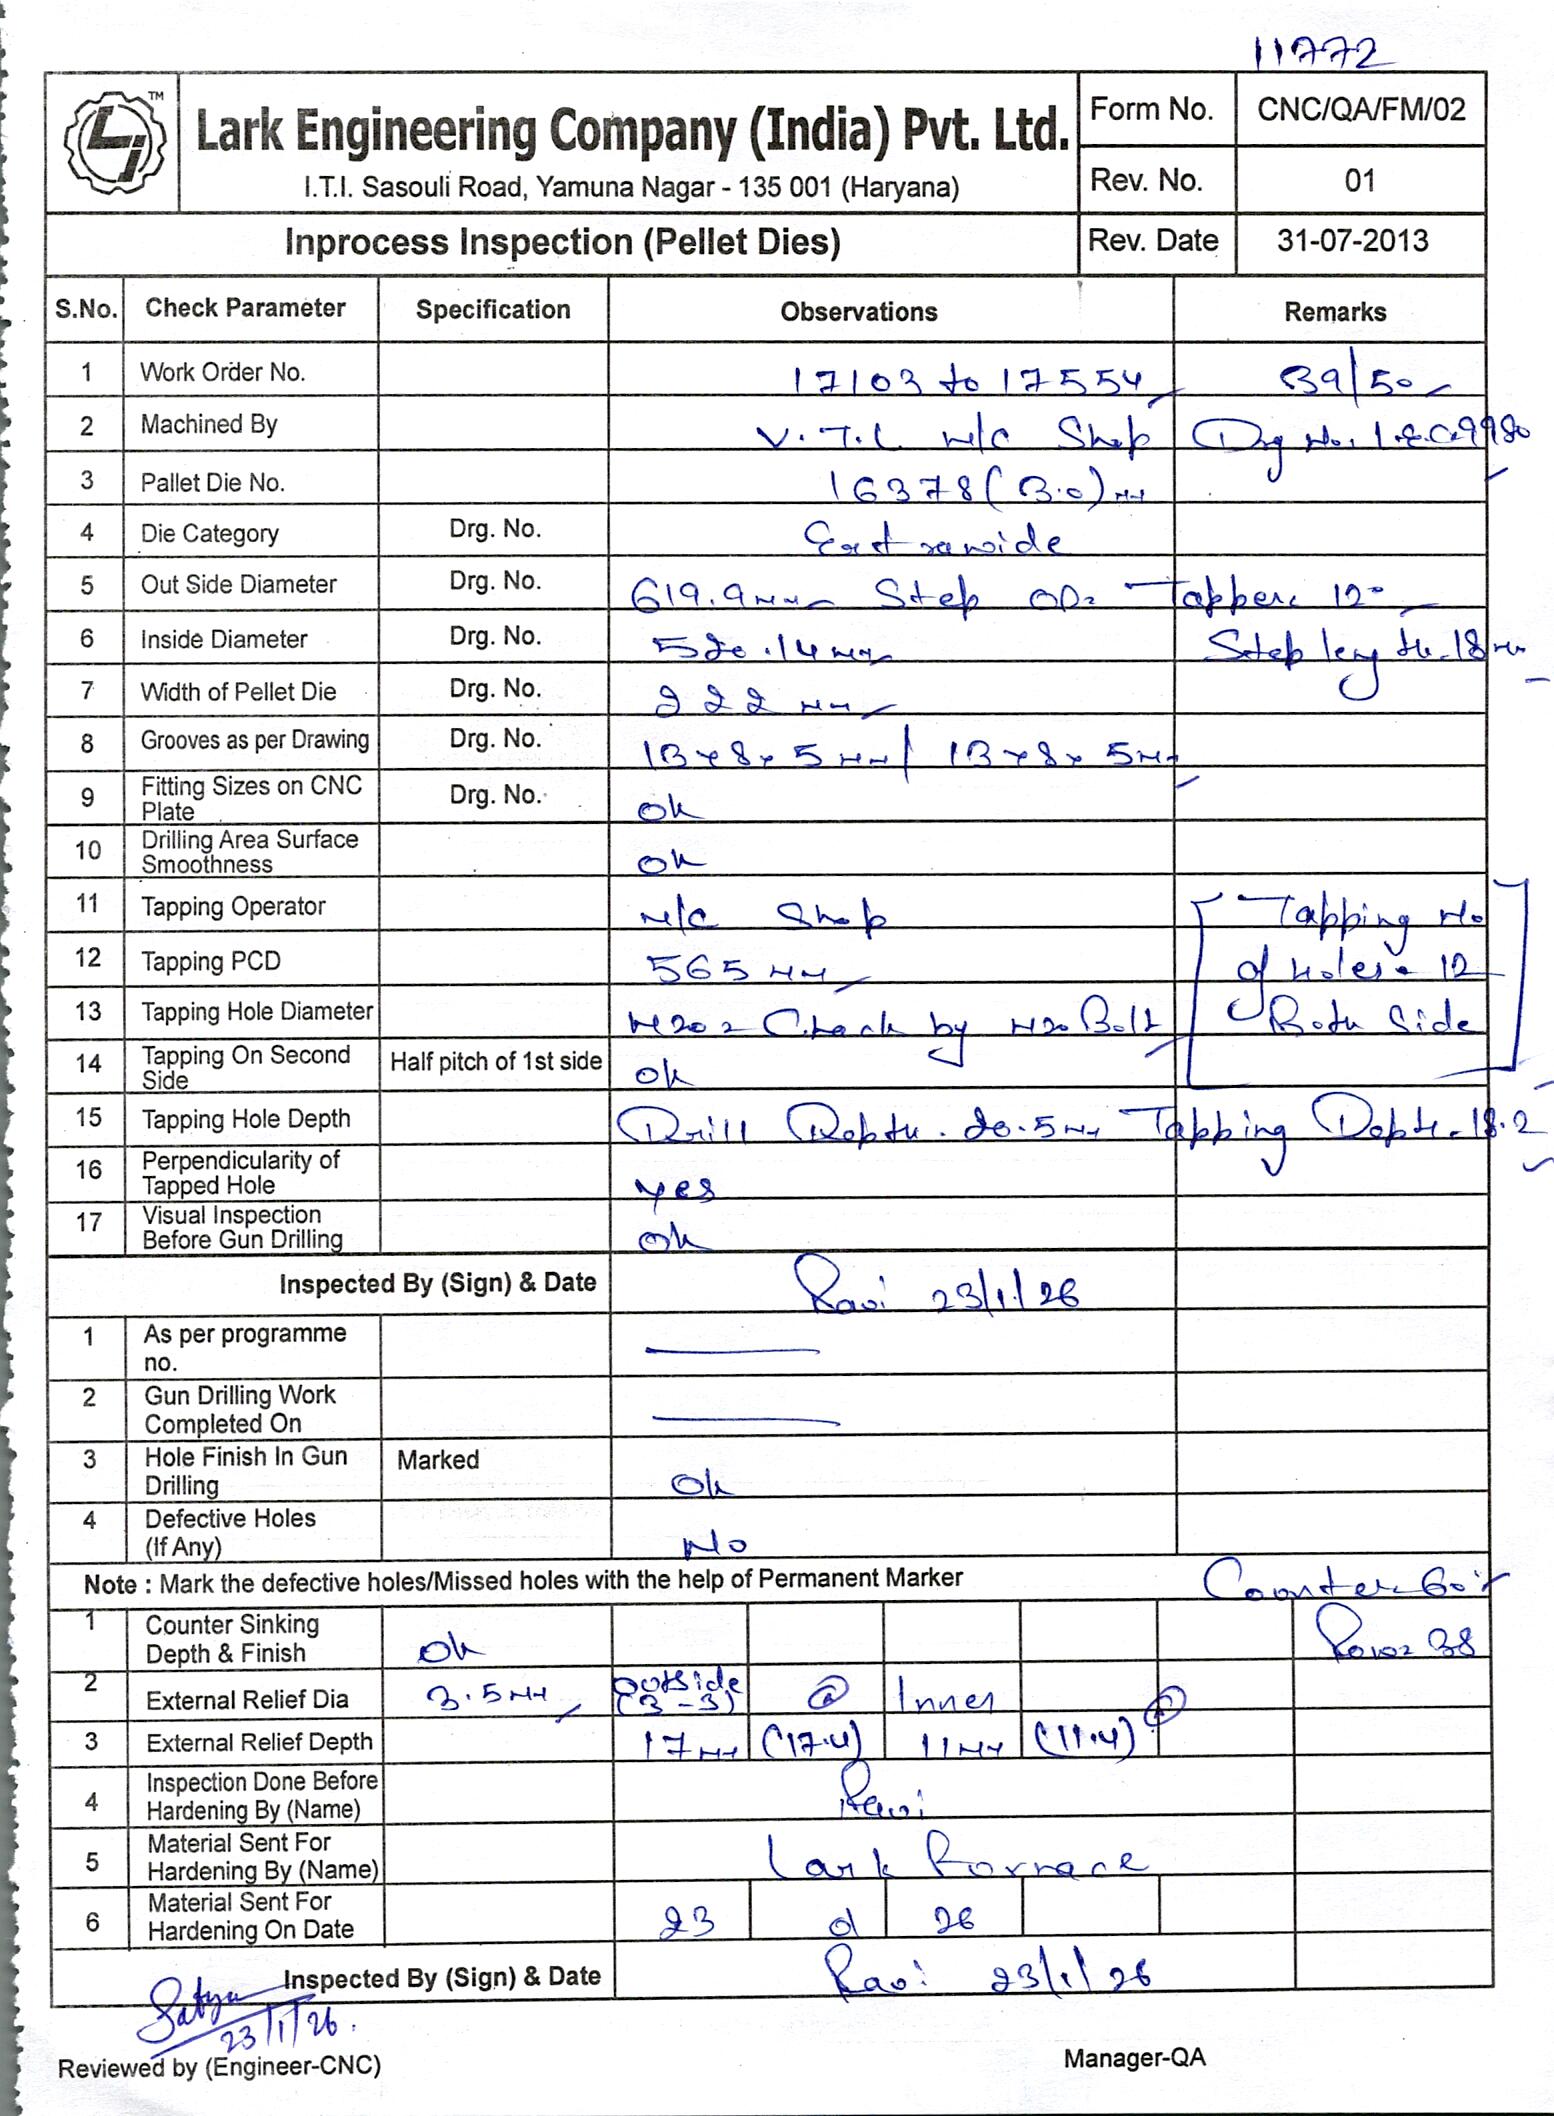 11772
Lark Engineering Company (India) Pvt. Ltd.
I.T.I. Sasouli Road, Yamuna Nagar - 135 001 (Haryana)
Form No. CNC/QA/FM/02
Rev. No. 01
Inprocess Inspection (Pellet Dies)
Rev. Date 31-07-2013
S.No. Check Parameter Specification Observations Remarks
1 Work Order No. 17103 to 17554 39/50
2 Machined By V.T.L M/C Shop Drg No. L.E.C.9980
3 Pallet Die No. 16378 (3.0) mm
4 Die Category Drg. No. Extrawide
5 Out Side Diameter Drg. No. 619.9mm Step OD= Tapper= 12°
6 Inside Diameter Drg. No. 520.14mm Step length-18mm
7 Width of Pellet Die Drg. No. 222 mm
8 Grooves as per Drawing Drg. No. 13x8x5mm/ 13x8x5mm
9 Fitting Sizes on CNC Plate Drg. No. ok
10 Drilling Area Surface Smoothness ok
11 Tapping Operator M/C Shop Tapping No
12 Tapping PCD 565 mm of Holes= 12
13 Tapping Hole Diameter M20 = Check by M20 Bolt Both Side
14 Tapping On Second Side Half pitch of 1st side ok
15 Tapping Hole Depth Drill Depth. 20.5mm Tapping Depth-18.2
16 Perpendicularity of Tapped Hole yes
17 Visual Inspection Before Gun Drilling ok
Inspected By (Sign) & Date Ravi 23/1/26
1 As per programme no.
2 Gun Drilling Work Completed On
3 Hole Finish In Gun Drilling Marked ok
4 Defective Holes (If Any) No
Note : Mark the defective holes/Missed holes with the help of Permanent Marker Counter-60°
1 Counter Sinking Depth & Finish ok Row= 38
2 External Relief Dia 3.5mm outside (3-3) @ Inner @
3 External Relief Depth 17mm (17.4) 11mm (11.4)
4 Inspection Done Before Hardening By (Name) Ravi
5 Material Sent For Hardening By (Name) Lark Fornace
6 Material Sent For Hardening On Date 23 26
Inspected By (Sign) & Date Ravi 23/1/26
Satyu
23/1/26.
Reviewed by (Engineer-CNC) Manager-QA